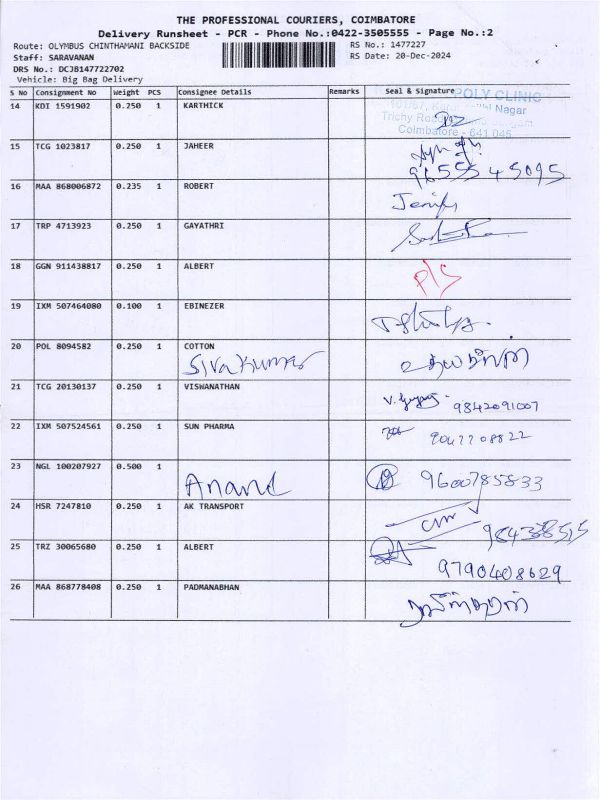 THE PROFESSIONAL COURIERS, COIMBATORE
Delivery Runsheet - PCR - Phone No.:0422-3505555 - Page No.:2
Route: OLYMBUS CHINTHAMANI BACKSIDE RS No.: 1477227
Staff: SARAVANAN RS Date: 20-Dec-2024
DRS No.: DCJB147722702
Vehicle: Big Bag Delivery
S No Consignment No Weight PCS Consignee Details Remarks Seal & Signature
POLY CLINIC
14 KDI 1591902 0.250 1 KARTHICK
Nagar
Trichy
Coimbatore - 641 045
15 TCG 1023817 0.250 1 JAHEER
96555 45095
16 MAA 868006872 0.235 1 ROBERT
17 TRP 4713923 0.250 1 GAYATHRI
18 GGN 911438817 0.250 1 ALBERT P/S
19 IXM 507464080 0.100 1 EBINEZER
20 POL 8094582 0.250 1 COTTON
Sivakumar
21 TCG 20130137 0.250 1 VISWANATHAN
9842091007
22 IXM 507524561 0.250 1 SUN PHARMA
23 NGL 100207927 0.500 1
Anand 9600785833
24 HSR 7247810 0.250 1 AK TRANSPORT
25 TRZ 30065680 0.250 1 ALBERT
9790408629
26 MAA 868778408 0.250 1 PADMANABHAN